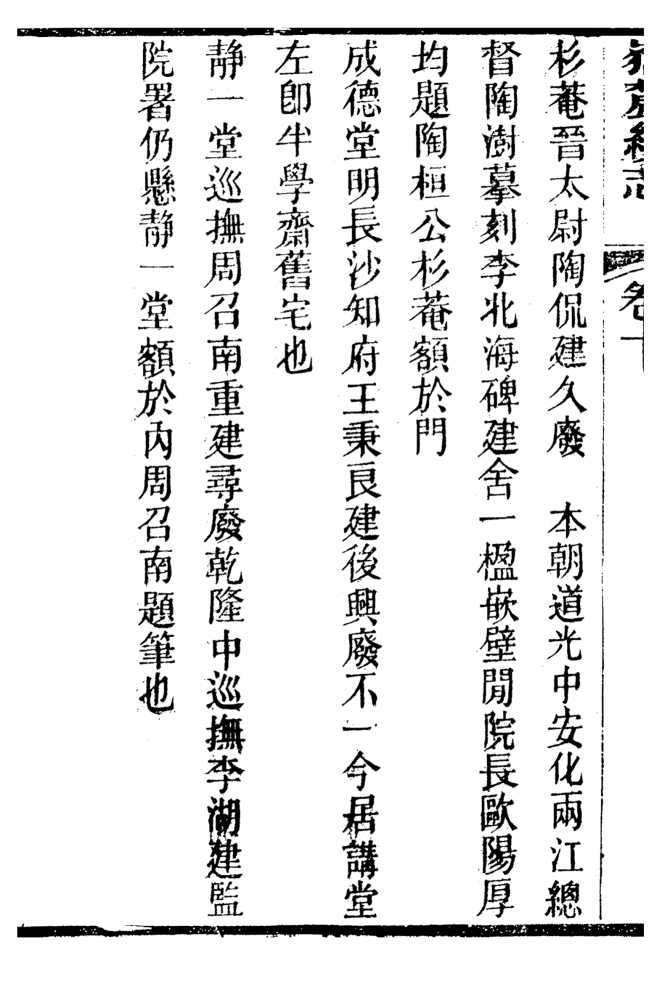 嶽麓續志 卷一
杉菴晉太尉陶侃建久廢　本朝道光中安化兩江總
督陶澍摹刻李北海碑建舍一楹嵌壁閒院長歐陽厚
均題陶桓公杉菴額於門
成德堂明長沙知府王秉良建後興廢不一今居講堂
左卽半學齋舊宅也
靜一堂巡撫周召南重建尋廢乾隆中巡撫李湖建監
院署仍懸靜一堂額於內周召南題筆也